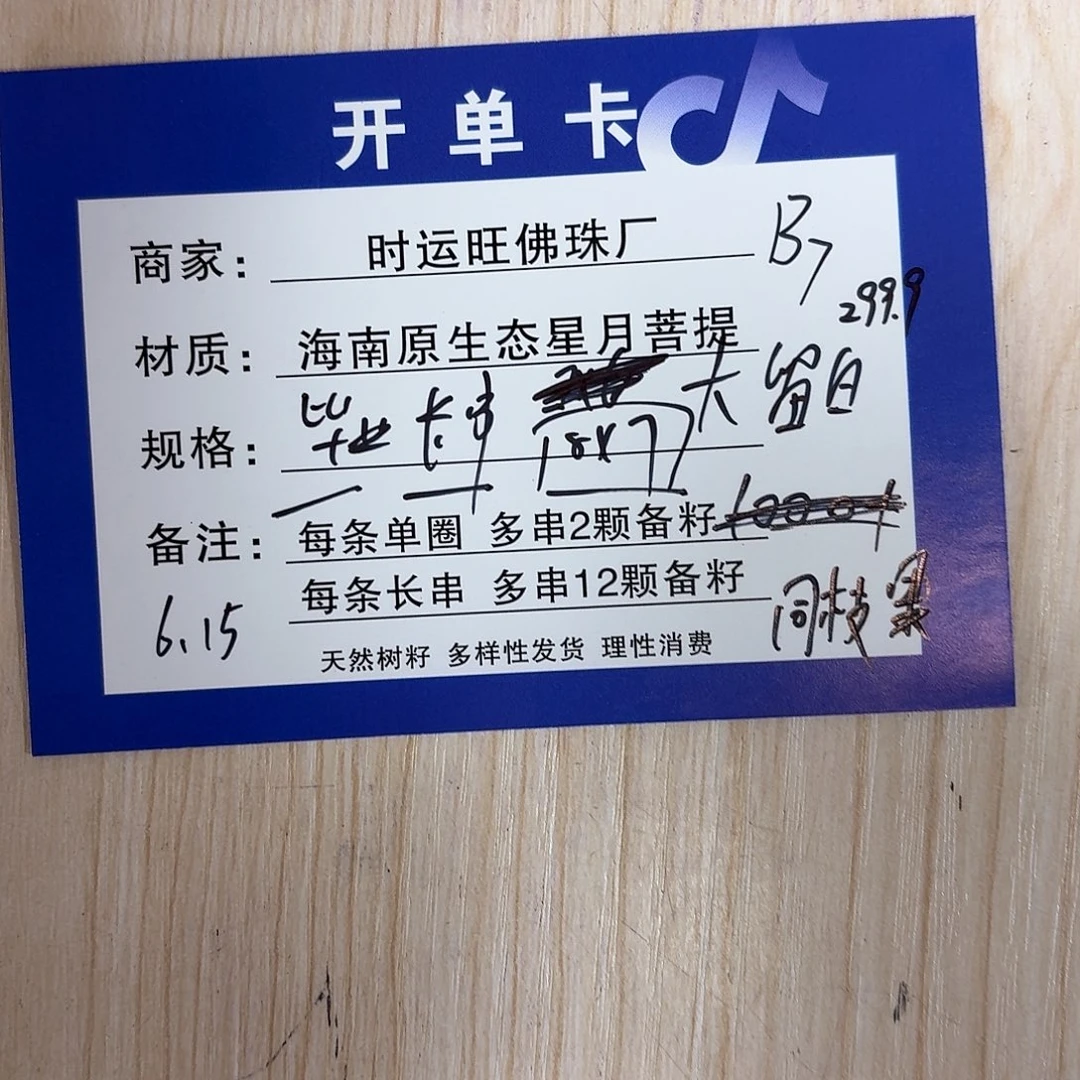 开单卡
商家： 时运旺佛珠厂 B7
299.9
材质： 海南原生态星月菩提
规格： 毕业卡串 18x7 大留白
备注： 每条单圈 多串2颗备籽
每条长串 多串12颗备籽
同枝果
6.15
天然树籽 多样性发货 理性消费